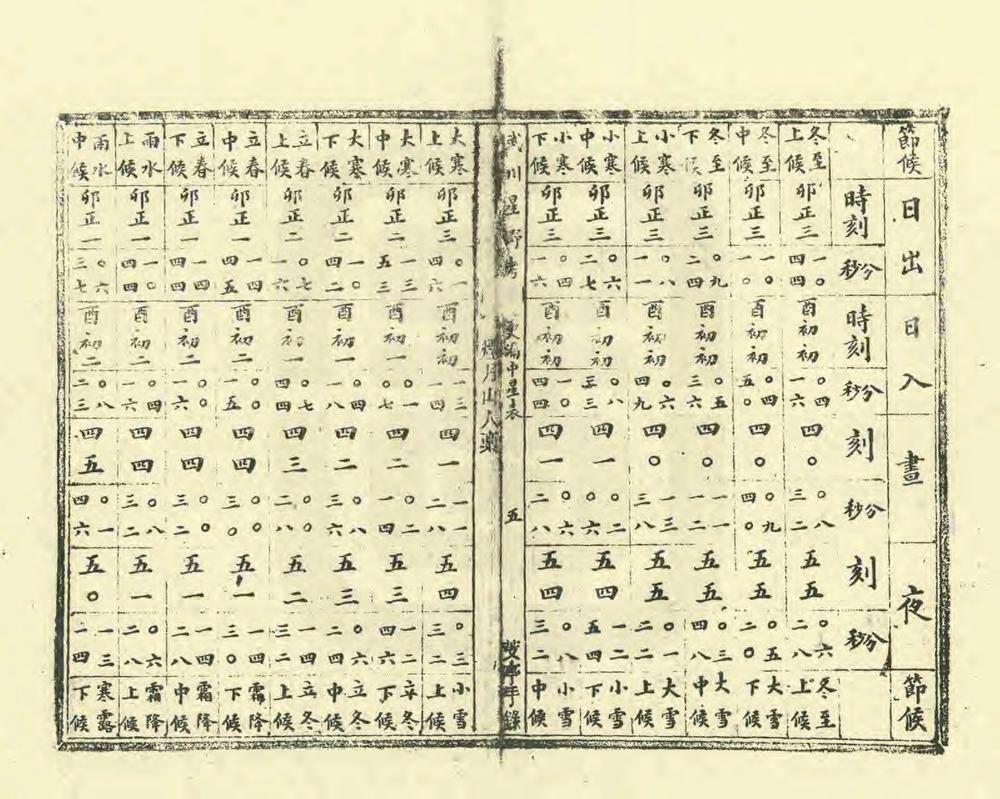 節候 日出 日入 晝 夜 節候
時刻 分秒 時刻 分秒 刻 分秒 刻 分秒
冬至上候 卯正三 一○四四 酉初初 ○四一六 四○ ○八三二 五五 ○六二八 冬至上候
冬至中候 卯正三 一○一○ 酉初初 ○四五○ 四○ ○九四○ 五五 ○五二○ 大雪下候
冬至下候 卯正三 ○九二四 酉初初 ○五三六 四○ 一一一二 五五 ○三四八 大雪中候
小寒上候 卯正三 ○八一一 酉初初 ○六四九 四○ 一三三八 五五 ○一二二 大雪上候
小寒中候 卯正三 ○六二七 酉初初 ○八三三 四一 ○二○六 五四 一二五四 小雪下候
小寒下候 卯正三 ○四一六 酉初初 一○四四 四一 ○六二八 五四 ○八三二 小雪中候
星野 中星表
五
月山人
手錄
大寒上候 卯正三 ○一四六 酉初初 一三一四 四一 一一二八 五四 ○三三二 小雪上候
大寒中候 卯正二 一三五三 酉初一 ○一○七 四二 ○二一四 五三 一二四六 立冬下候
大寒下候 卯正二 一○四二 酉初一 ○四一八 四二 ○八三六 五三 ○六二四 立冬中候
立春上候 卯正二 ○七一六 酉初一 ○七四四 四三 ○○二八 五二 一四三二 立冬上候
立春中候 卯正一 一四四五 酉初二 ○○一五 四四 ○○三○ 五一 一四三○ 霜降下候
立春下候 卯正一 一四四四 酉初二 ○○一六 四四 ○○三二 五一 一四二八 霜降中候
雨水上候 卯正一 一○四四 酉初二 ○四一八 四四 ○八三二 五一 ○六二八 霜降上候
雨水中候 卯正一 ○六三七 酉初二 ○八二三 四五 ○一四六 五○ 一三一四 寒露下候